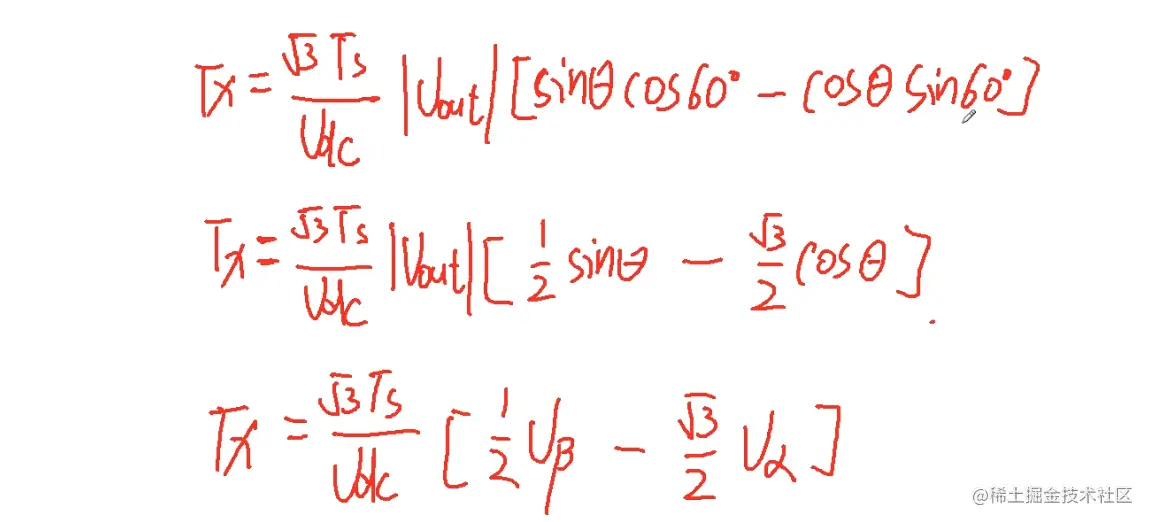 Tx = √3 Ts / Udc |Uout| [sinθ cos60° − cosθ sin60°]
Tx = √3 Ts / Udc |Uout| [1/2 sinθ − √3/2 cosθ].
Tx = √3 Ts / Udc [1/2 Uβ − √3/2 Uα]
@稀土掘金技术社区